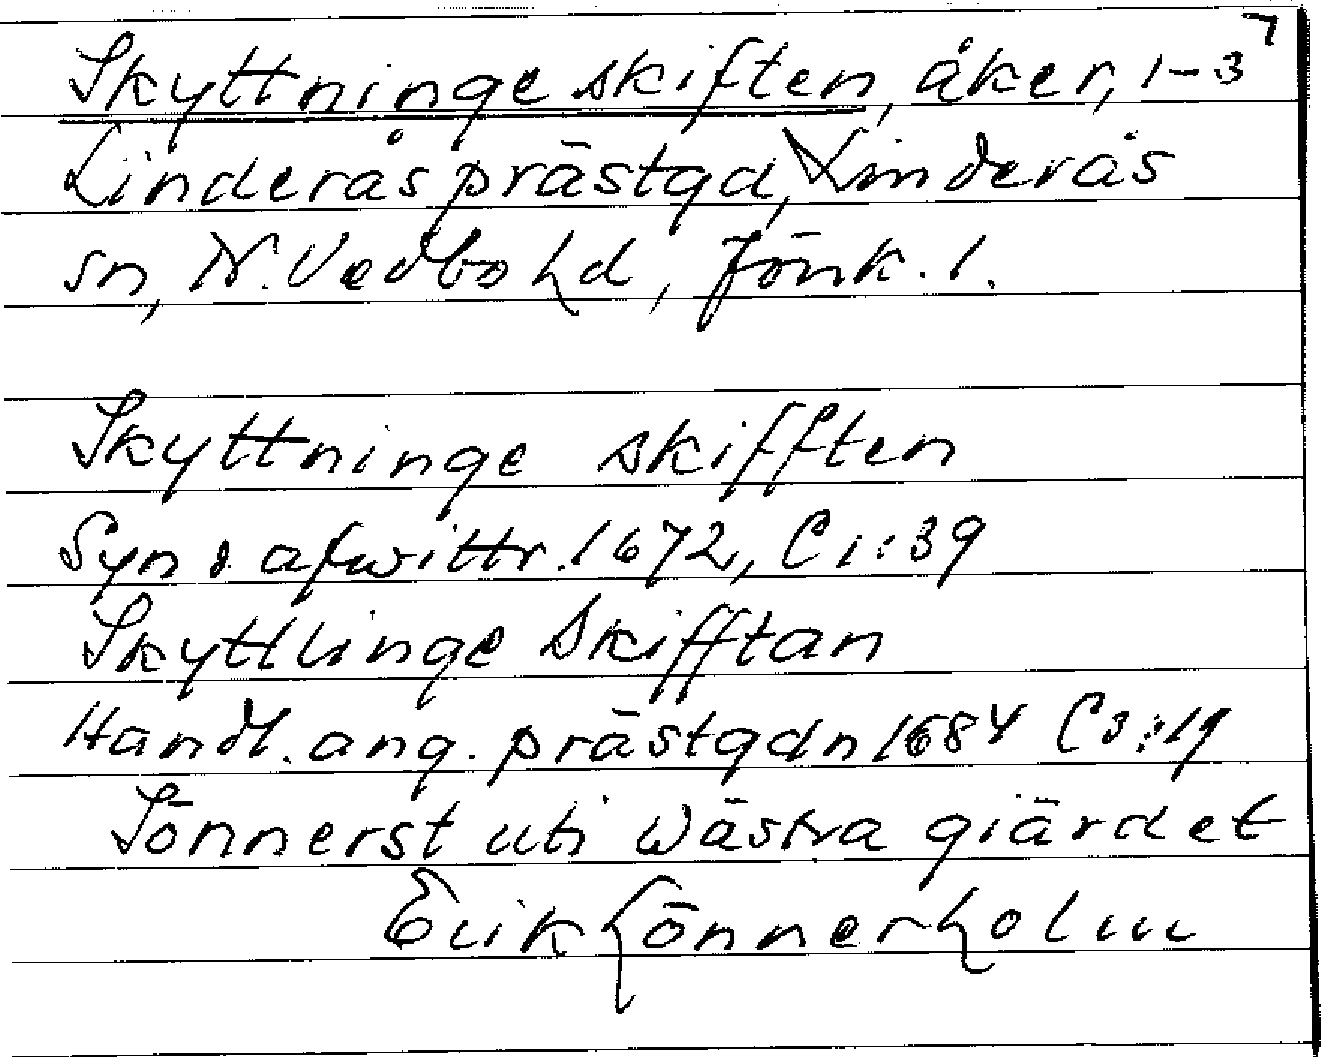 7
Skyttninge skiften, åker, 1-3
Linderås prästgd, Linderås
sn, N. Vedbo hd, Jönk. l.
Skyttninge skifften
Syn o. afwittr. 1672, C 1:39
Skyttlinge Skifftan
Handl. ang. prästgdn 1684 C 3:19
Sönnerst uti wästra giärdet
Erik Lönnerholm